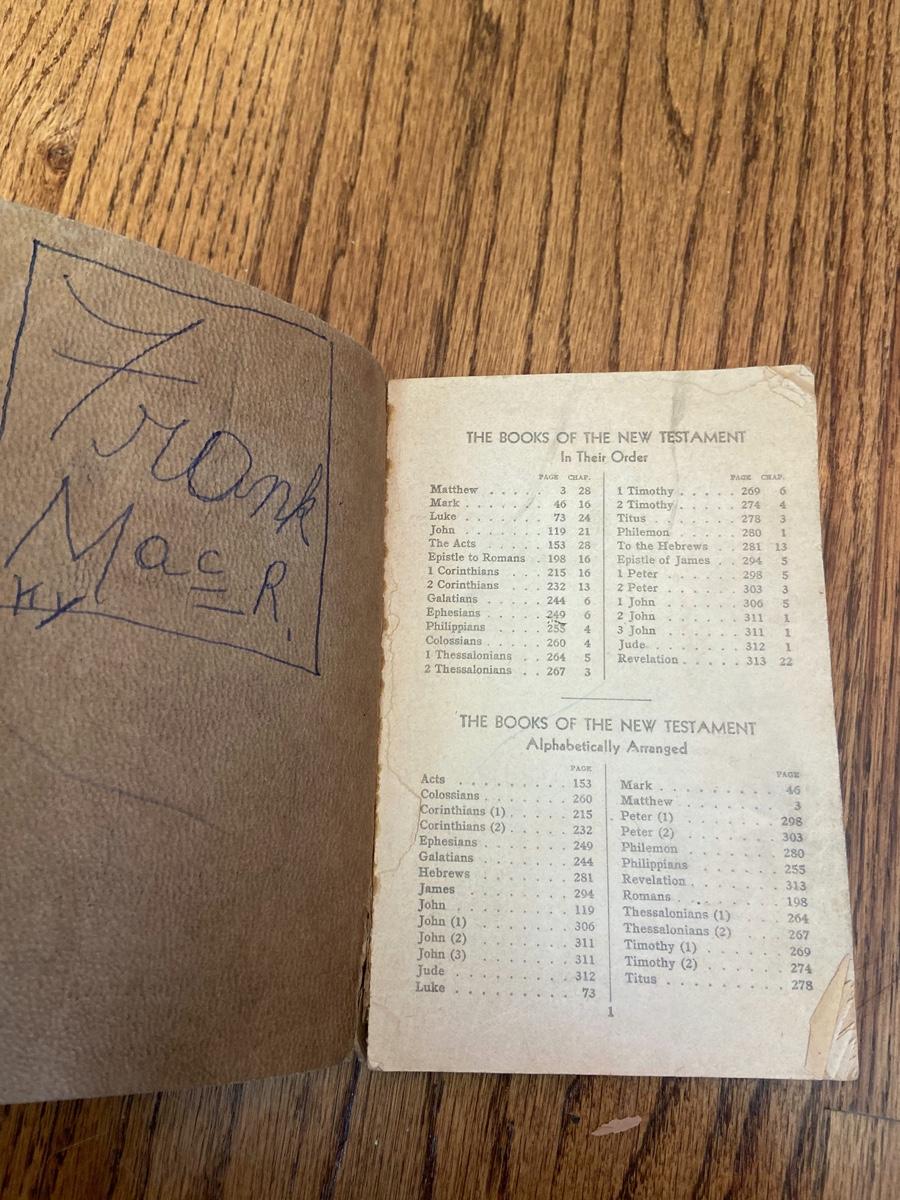 Frank
Mac R.
Ky
THE BOOKS OF THE NEW TESTAMENT
In Their Order
PAGE CHAP.
Matthew . . . . . 3 28
Mark . . . . . 46 16
Luke . . . . . 73 24
John . . . . . 119 21
The Acts . . . . . 153 28
Epistle to Romans . . 198 16
1 Corinthians . . . . 215 16
2 Corinthians . . . . 232 13
Galatians . . . . . 244 6
Ephesians . . . . . 249 6
Philippians . . . . . 255 4
Colossians . . . . . 260 4
1 Thessalonians . . . 264 5
2 Thessalonians . . . 267 3
PAGE CHAP.
1 Timothy . . . . . 269 6
2 Timothy . . . . . 274 4
Titus . . . . . 278 3
Philemon . . . . . 280 1
To the Hebrews . . . 281 13
Epistle of James . . . 294 5
1 Peter . . . . . 298 5
2 Peter . . . . . 303 3
1 John . . . . . 306 5
2 John . . . . . 311 1
3 John . . . . . 311 1
Jude . . . . . 312 1
Revelation . . . . . 313 22
THE BOOKS OF THE NEW TESTAMENT
Alphabetically Arranged
PAGE
Acts . . . . . 153
Colossians . . . . . 260
Corinthians (1) . . . . . 215
Corinthians (2) . . . . . 232
Ephesians . . . . . 249
Galatians . . . . . 244
Hebrews . . . . . 281
James . . . . . 294
John . . . . . 119
John (1) . . . . . 306
John (2) . . . . . 311
John (3) . . . . . 311
Jude . . . . . 312
Luke . . . . . 73
PAGE
Mark . . . . . 46
Matthew . . . . . 3
Peter (1) . . . . . 298
Peter (2) . . . . . 303
Philemon . . . . . 280
Philippians . . . . . 255
Revelation . . . . . 313
Romans . . . . . 198
Thessalonians (1) . . . . . 264
Thessalonians (2) . . . . . 267
Timothy (1) . . . . . 269
Timothy (2) . . . . . 274
Titus . . . . . 278
1